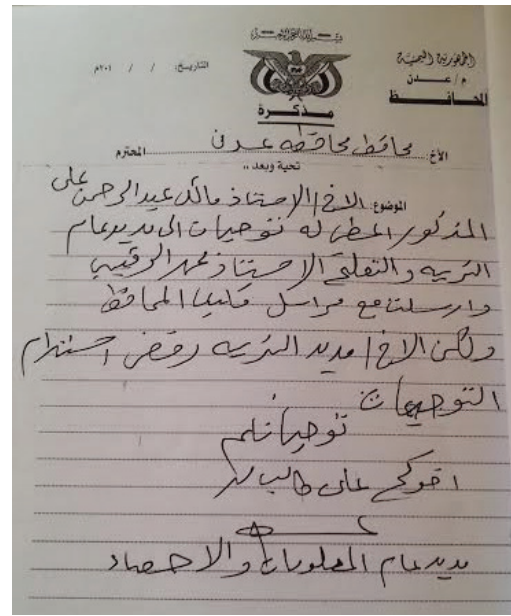 بسم الله الرحمن الرحيم
الجمهورية اليمنية
م/عدن
المحافظ
التاريخ: / / ٢٠١م
مذكرة
الأخ: محافظ محافظه عدن المحترم
تحية وبعد ،،
الموضوع: الاخ/ الاستاذ مائل عبدالرحمن علي
المذكور اعطى له توجيهات الى مدير عام
التربيه والتعليم الاستاذ محمد الرقيبي
وارسلت مع مراسل المحافظ
ولكن الاخ/ مدير التربيه رفض استلام
التوجيهات
توجيهاتكم
اخوكم علي طالب
مدير عام المعلومات والاحصاء